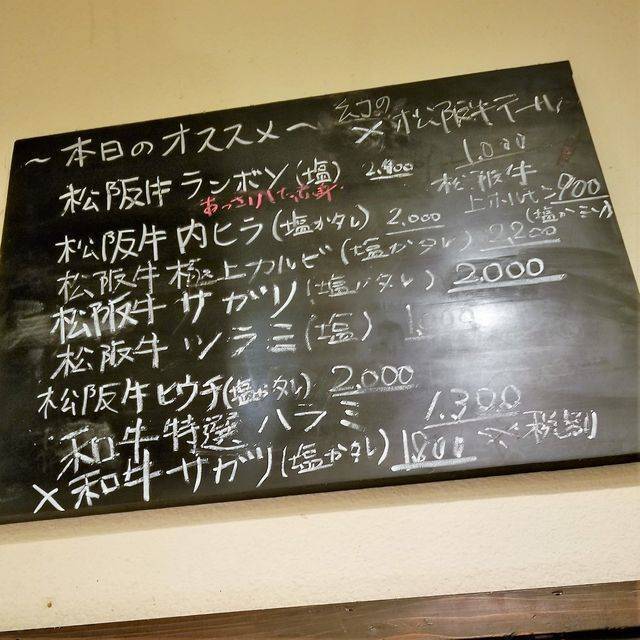 ～本日のオススメ～
幻の
×松阪牛テール
1,000
松阪牛 ランボソ(塩)
松阪牛
上ホルモン 900
(塩かミソ)
松阪牛 内ヒラ(塩かタレ) 2,000
松阪牛 極上カルビ(塩かタレ) 2,200
松阪牛 サガリ(塩かタレ) 2,000
松阪牛 ツラミ(塩)
松阪牛 ヒウチ(塩かタレ) 2,000
和牛特選 ハラミ 1,300
×和牛 サガリ(塩かタレ) 1,800
税別